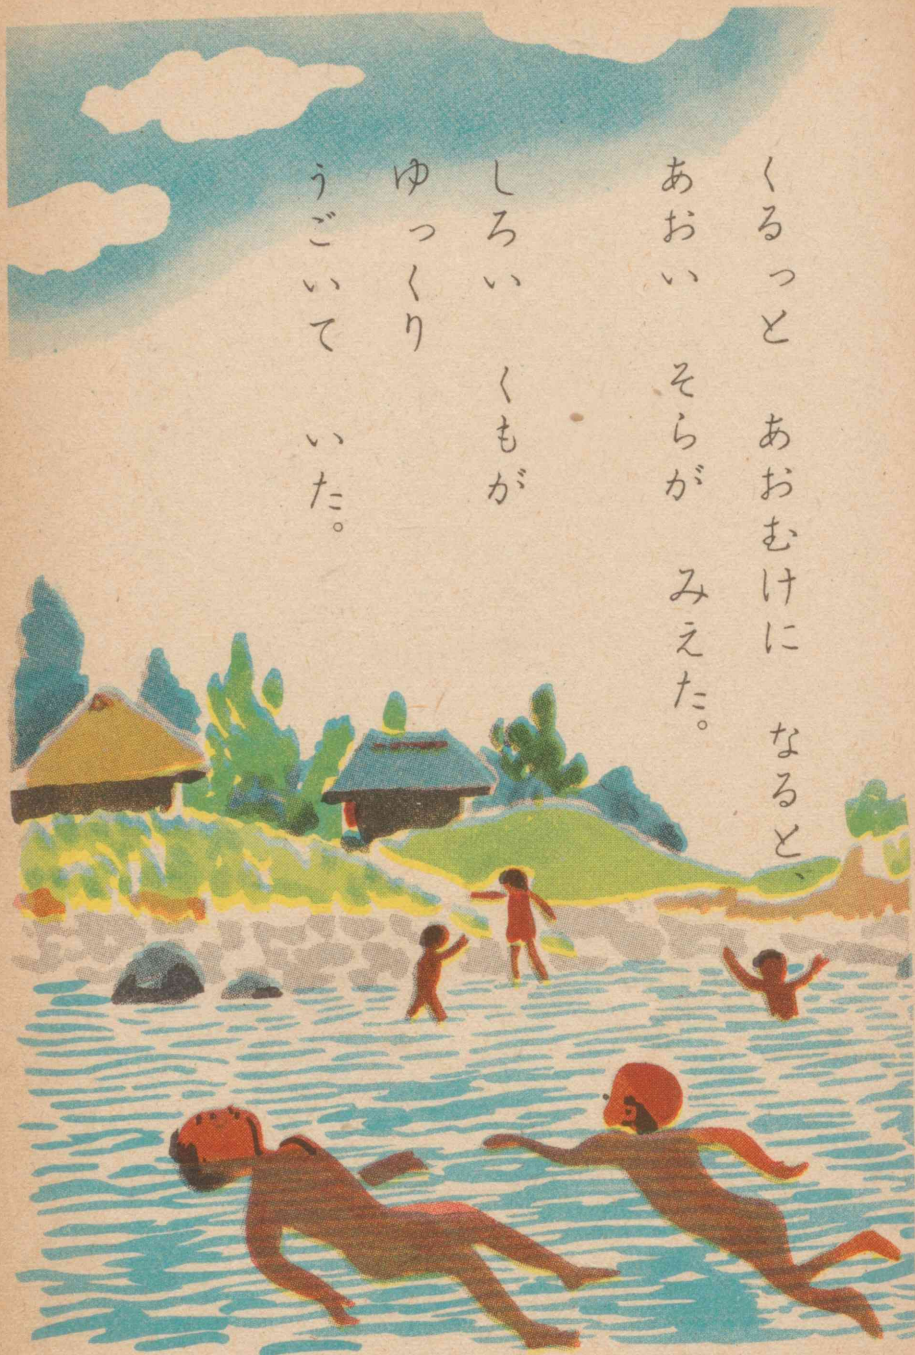 くるっと あおむけに なると、
あおい そらが みえた。
しろい くもが
ゆっくり
うごいて いた。